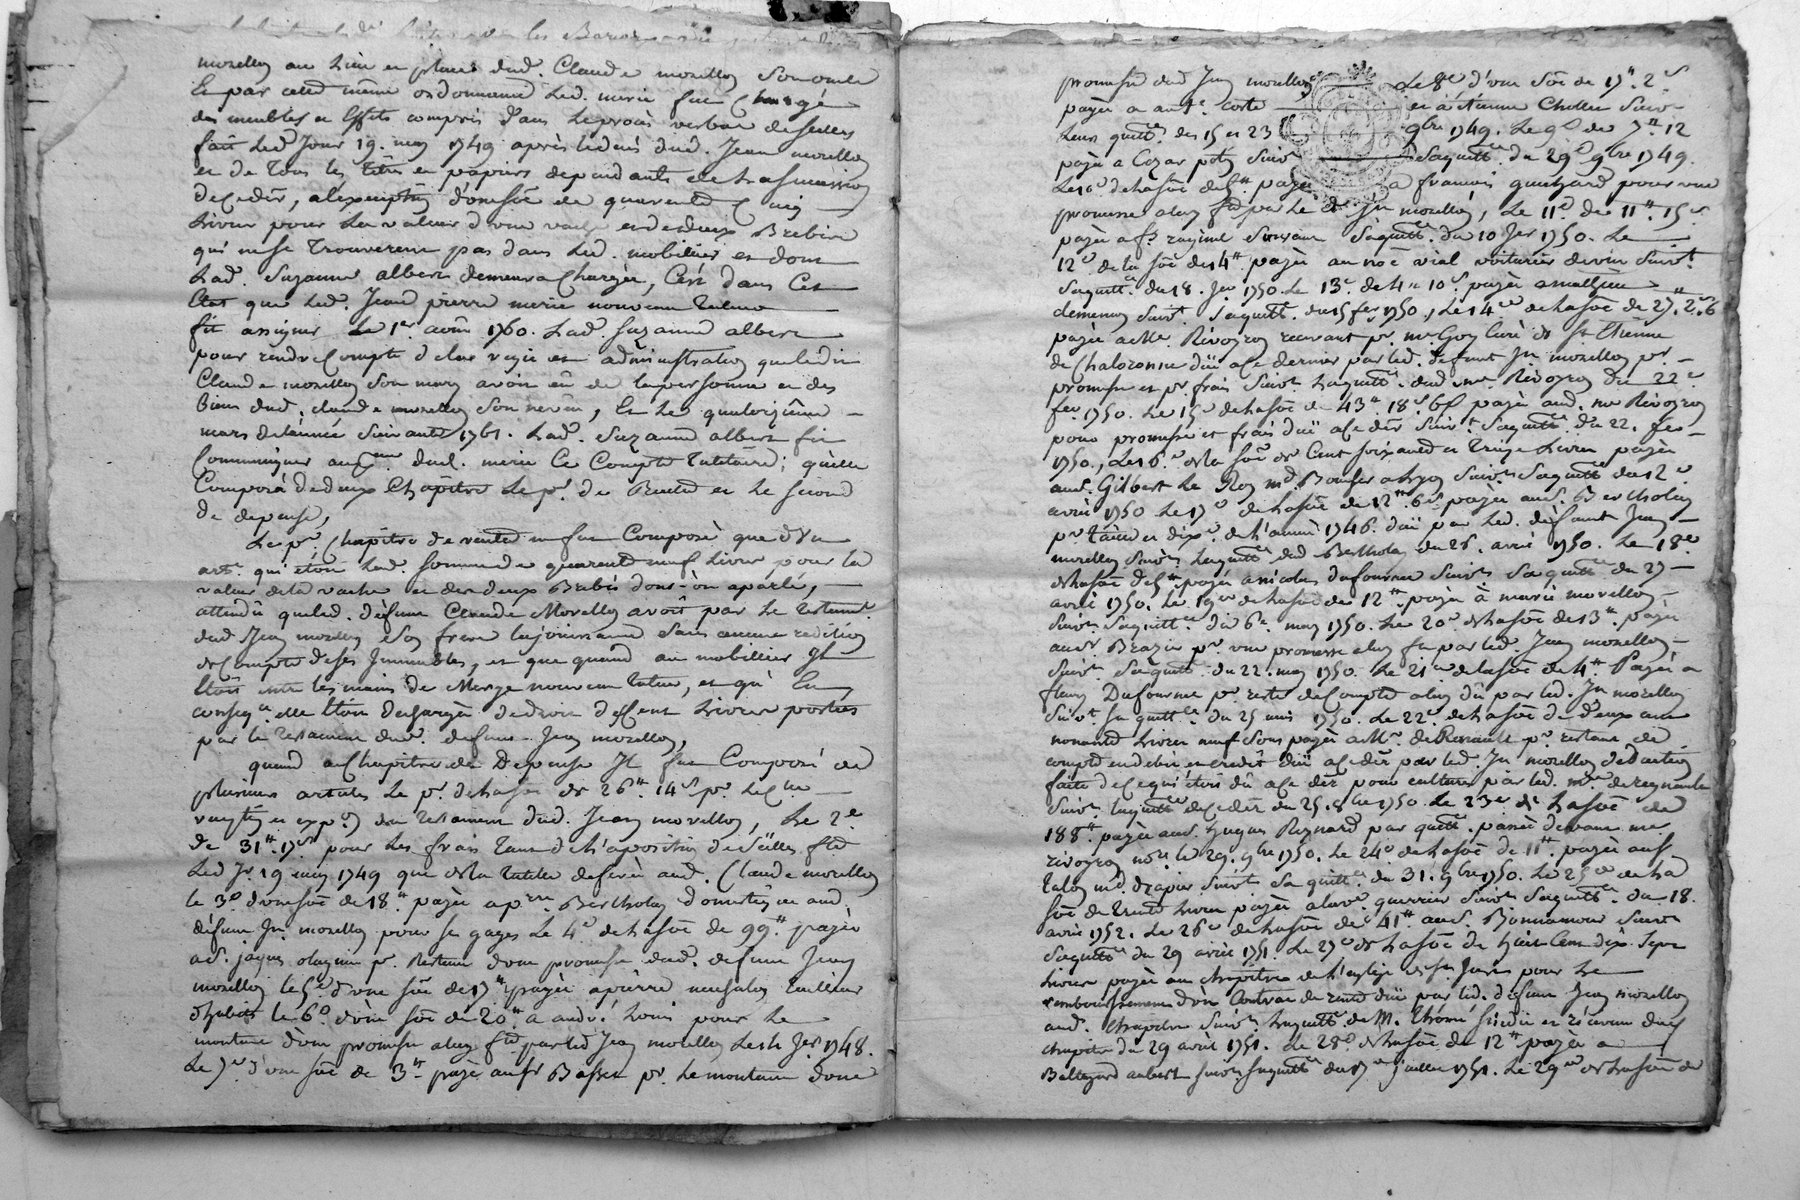 morellon au lieu et place dud. Claude morellon son oncle
Et par cette même ordonnance led. merie fut Chargé
des meubles et Effets compris dans le procès verbal de scellés
fait led Jour 19. may 1749 après le decès dud. Jean morellon
et de tous les titres et papiers dependants de la succession
de ce dér, a l'exception d'une soe de quarente Cinq
Livres pour la valeur d'une vache et de deux Brebis
qui ne se trouverent pas dans led. mobilier et dont
Lad. Suzanne albert demeura Chargée, C'est dans Cet
Etat que led. Jean pierre merie nouveau tuteur
fit assigner le 1er avril 1760. Lad. Suzanne albert
pour rendre Compte de la regie et administration que ledit
Claude morellon son mary avoit eû de la personne et des
biens dud. claude morellon son neveu, Et le quatorzième
mars de l'année suivante 1761. Lad. Suzanne albert fit
Communiquer au dud. merie Ce Compte tutelaire; qu'elle
Composa de deux Chapitres le pr. de Recette et le second
de depense,
Le pr. Chapitre de recette ne fut Composé que d'un
art. qui étoit lad. somme de quarente neuf Livres pour la
valeur de la vache et des deux Brebis dont on a parlé,
attendû que led. défunt Claude Morellon avoit par le testamt.
dud Jean morellon son frere la jouissance sans aucune reddition
de Compte de ses Immeubles, et que quand au mobillier Il
Etoit entre les mains de Merye nouveau tuteur, et qu' En
conseqce. elle Etoit dechargée de Livres portées
par le testament dud. defunt Jean morellon,
quand au Chapitre de Depense Il fut Composé de
plusieurs articles Le pr. de la soe de 26tt. 14s pr.
et expon du testament dud. Jean morellon, Le 2e
de 31tt. 17s pour les frais tant de l'aposition de scelles
Led Jr. 19 may 1749 que de la tutelle deferée aud. Claude morellon
le 3e d'une soe de 18tt payée a pre. Bertholon domestique aud.
défunt Jn. morellon pour ses gages Le 4e de la soe de 99tt payée
a d. jaques pr. Restant d'une promesse dud. defunt Jean
morellon le 5e d'une soe de 13tt payée a pierre tailleur
d'habits le 6e d'une soe de 20tt a andré pour le
montant d'une promesse a luy fte par led Jean morellon Le Jer. 1748.
Le 7e d'une soe de 3tt payée au sr Basset pr. le montant d'une
promesse dud Jean morellon Le 8e d'une Soe de 17tt. 2s
payée a ante. coste et à étienne Chollet Suivt
Leurs quittces. des 15 et 23 9bre 1749. Le 9e de 7tt 12
payée a Cezar petit suivt Sa quittce. du 29e 9bre 1749.
Le 10e de la soe de payée a francois pour une
promesse a luy fte par Le dt Jn morellon, Le 11e de 11tt. 15s
payée a fs. raginel Suivant Sa quittce. du 10 Jer 1750. Le
12e de la soe de 14tt payée au noé vial voiturier de vin suivt.
Sa quittce. du 18. Jer 1750. Le 13e de 4tt 10s. payée a mathieu
clemençon suivt. Sa quittce. du 15 fer 1750., Le 14e de la soe de 27. 2s 6
payée a Me. Rivoyron recevant pr. mre Goy Curé de St Etienne
de Chalaronne due a ce dernier par led. defunt Jn morellon pr.
promesse et pr. frais suivt. la quittce. dud. me. Rivoyron du 22e
fer. 1750. Le 15e de la soe de 43tt. 18s. 6d payée aud. me Rivoyron
pour promesse et frais due a ce der suivt. Sa quittce. du 22. fer
1750., Le 16e de la soe de Cent soixante et treize Livres payée
aud. Gilbert Le Roy md. Boucher a Lyon suivt. Sa quittce du 12e
avril 1750 Le 17e de la soe de 12tt. 6s payée aud. Bertholon
pr. taille et dixe. de l'année 1746. due par led. défunt Jean
morellon suivt. la quittce. dud Bertholon du 26. avril 1750. Le 18e.
de la soe de payée a nicolas dufourne suivt. Sa quittce. du 27
avril 1750. Le 19e de la soe de 12tt. payée à marie morellon
suivt. Sa quittce. du 6e. may 1750. Le 20e de la soe de 13tt. payée
au sr. Brazier pr. une promesse a luy fte par led. Jean morellon
suivt. Sa quittce. du 22. may 1750. Le 21e de la soe de 4tt. Payée a
fleury Dufourne pr. reste de Compte a luy dû par led. Jn morellon
suivt. sa quittce. du 25 may 1750. Le 22e. de la soe de deux cent
nonante Livres neuf sous payée a Mr. de Renault pr. restant de
compte en debit et credit due a ce dér par led. Jn morellon deduction
faite de ce qui étoit dû a ce dér pour culture par led. mr.
suivt. la quittce de ce dér du 25. 8bre 1750. Le 23e de la soe de
188tt. payée aud. hugues Reynard par quittce. passée devant me
rivoyron nore le 29. 9bre 1750. Le 24e de la soe de 11tt. payée au sr
talon md. drapier suivt. Sa quittce. du 31. 9bre 1750. Le 25e de la
soe de trente Livres payée a la ve. guerrier suivt. Sa quittce. du 18.
avril 1752. Le 26e de la soe de 41tt. au s. Bonnamour suivt
Sa quittce du 29 avril 1751. Le 27e de la soe de huit Cent dix Sept
Livres payée au chapitre de l'eglise de st Just pour le
remboursement d'un Contrat de rente due par led. défunt Jean morellon
aud. chapitre suivt. la quittce. de M. et receveur dud
chapitre du 29 avril 1751. Le 28e de la soe de 12tt payée a
Baltazard aubert suivt. Sa quittce du 17e juillet 1751. Le 29e de la soe de